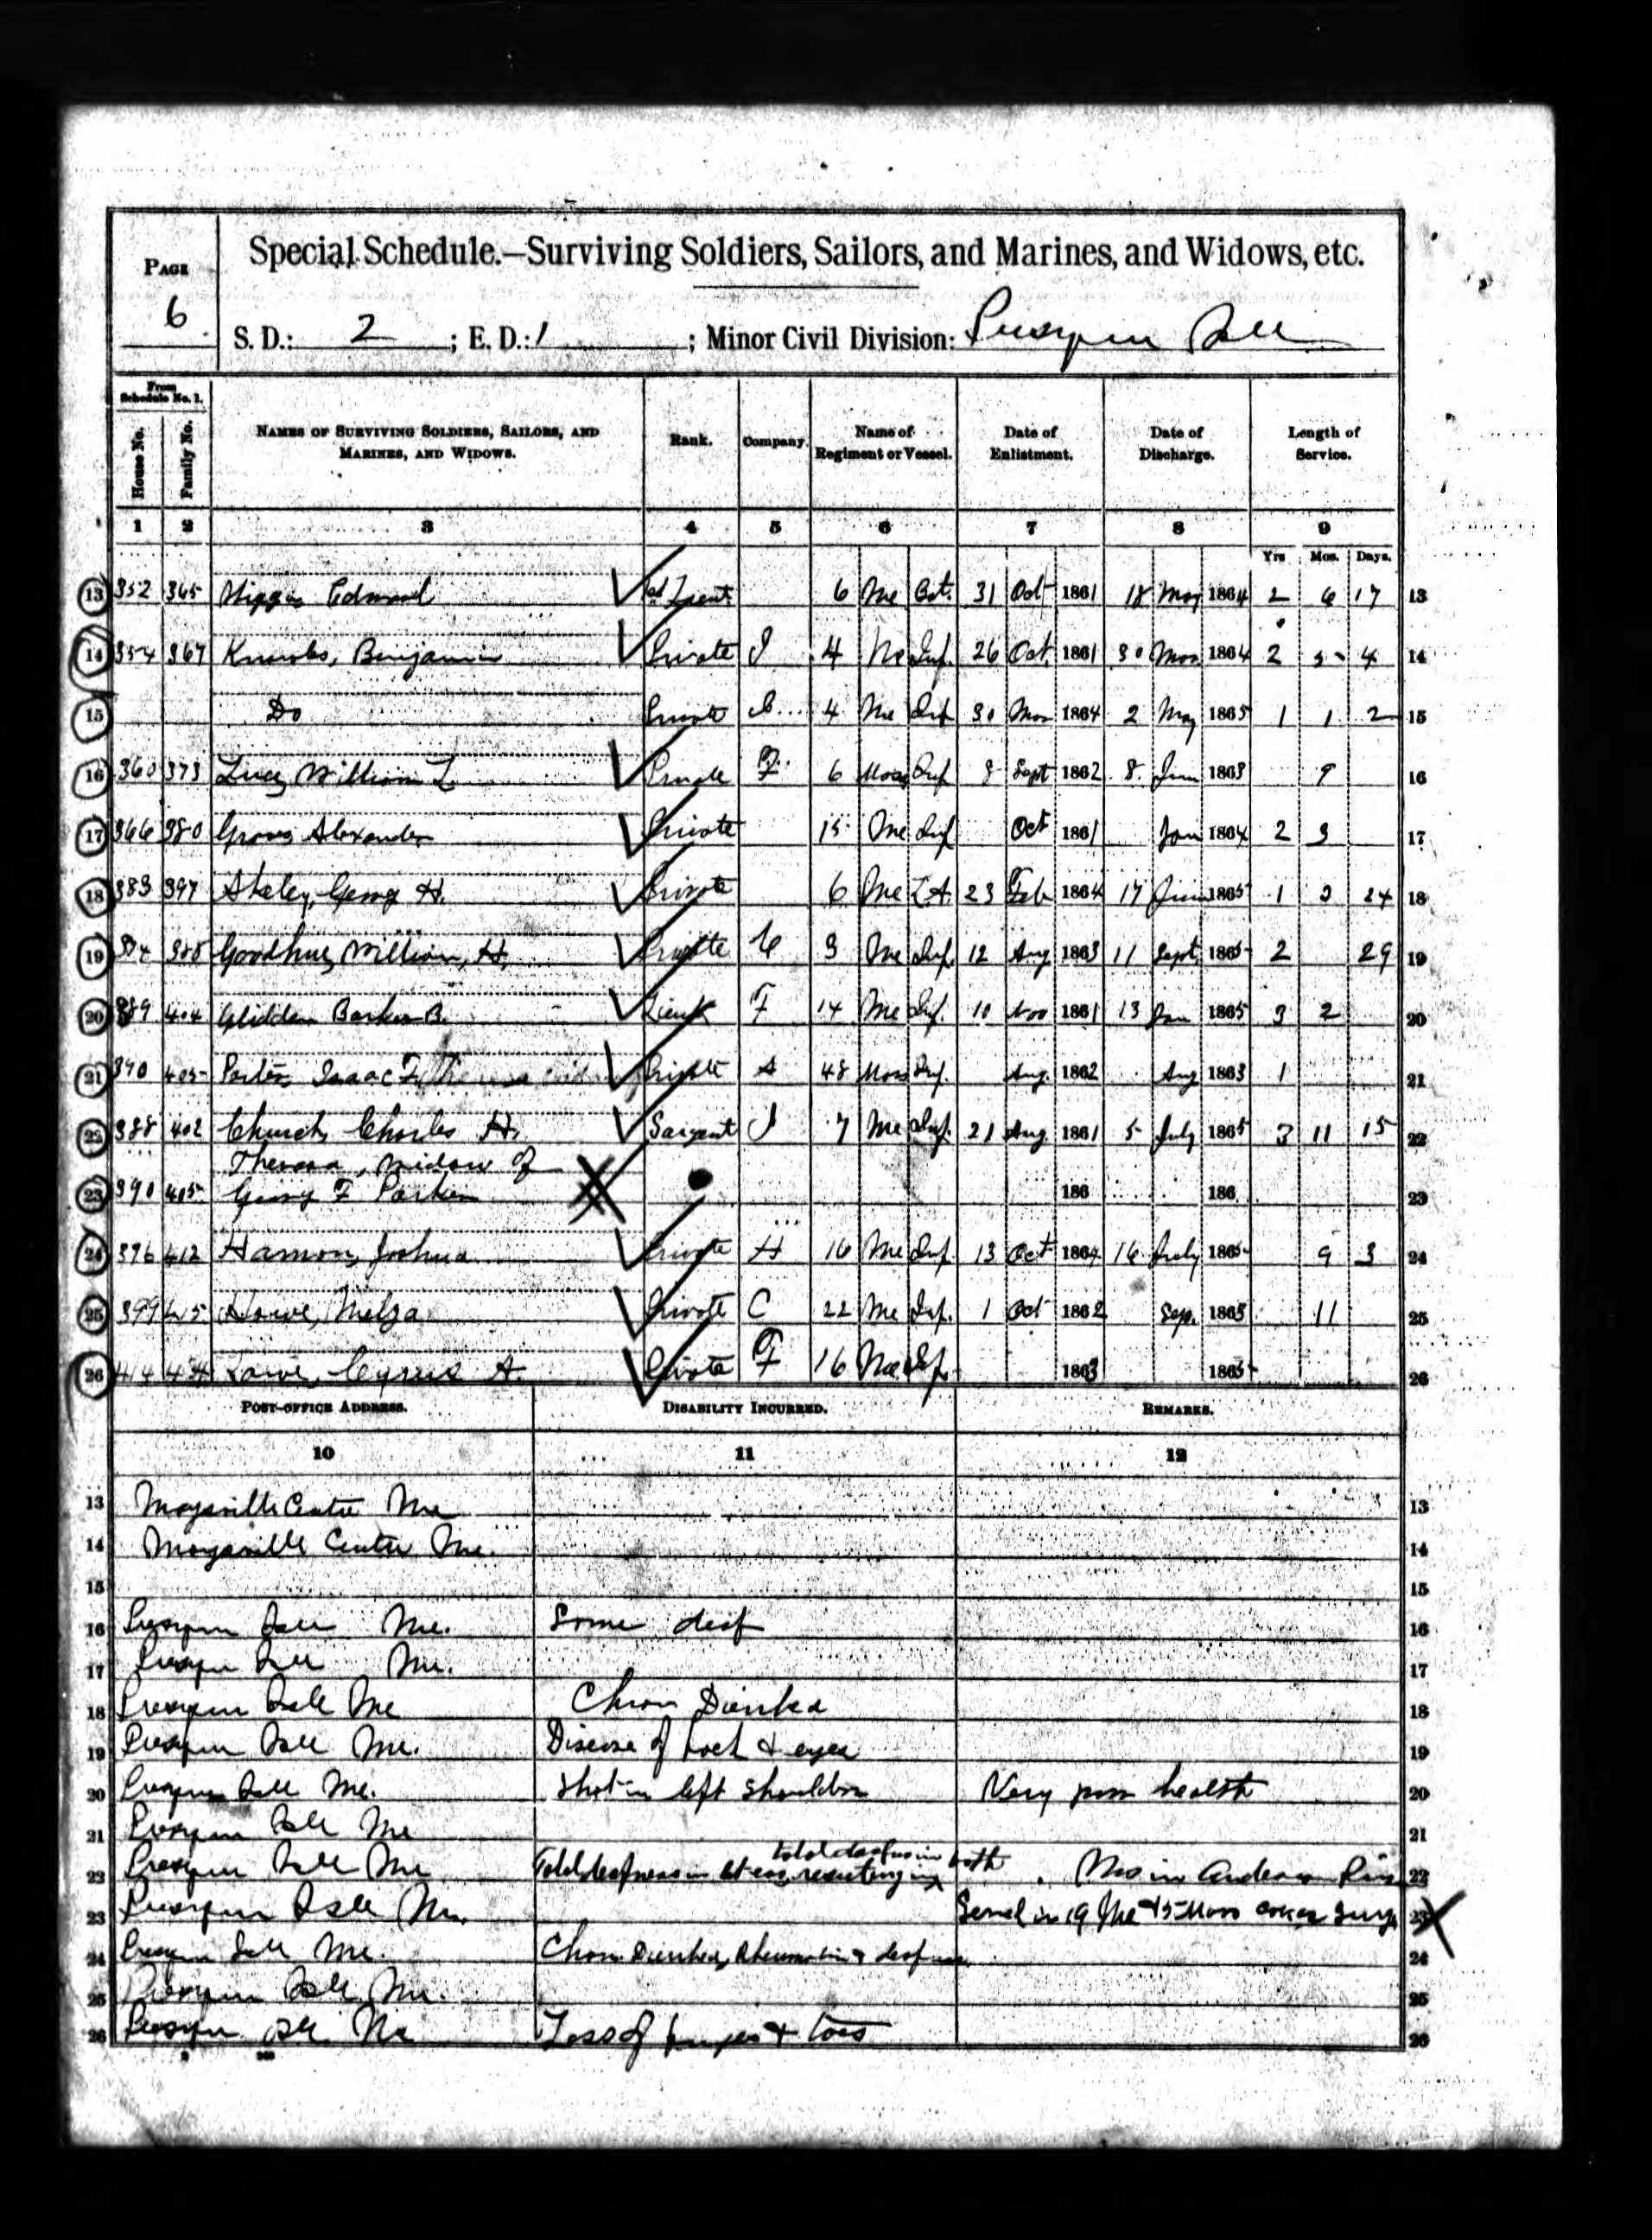 PAGE
6
Special Schedule.—Surviving Soldiers, Sailors, and Marines, and Widows, etc.
S. D.: 2 ; E. D.: 1 ; Minor Civil Division: Presque Isle
From Schedule No. 1.
House No.
Family No.
NAMES OF SURVIVING SOLDIERS, SAILORS, AND MARINES, AND WIDOWS.
Rank.
Company.
Name of Regiment or Vessel.
Date of Enlistment.
Date of Discharge.
Length of Service.
1 2 3 4 5 6 7 8 9
Yrs Mos. Days.
13 352 365 Higgins Edward 1st Lieut. 6 Me Bat. 31 Oct 1861 18 May 1864 2 6 17 13
14 354 367 Benjamin Private I 4 Me Inf. 26 Oct. 1861 30 Mar 1864 2 5 4 14
15 Do Private 4 Me Inf 30 Mar 1864 2 May 1865 1 1 2 15
16 360 373 William L Private F 6 Mass Inf 8 Sept 1862 8 Jun 1863 9 16
17 366 380 Alexander Private 15 Me Inf Oct 1861 Jan 1864 2 3 17
18 383 397 George H. Private 6 Me L.A. 23 Feb 1864 17 June 1865 1 3 24 18
19 388 Goodhue, William, H. Private C 9 Me Inf. 12 Aug 1863 11 Sept 1865 2 29 19
20 389 404 Glidden Barker B. Lieut F 14 Me Inf. 10 Nov 1861 13 Jan 1865 3 2 20
21 390 405 Isaac F. Private A 48 Mass Inf. Aug. 1862 Aug 1863 1 21
22 388 402 Church, Charles H. Sargent I 7 Me Inf. 21 Aug 1861 5 July 1865 3 11 15 22
Theresa, widow of
23 390 405 George F Parker 186 186 23
24 396 412 Hamon, Joshua Private H 16 Me Inf. 13 Oct 1864 16 July 1865 9 3 24
25 399 415 Melza Private C 22 Me Inf. 1 Oct 1862 Sep. 1863 11 25
26 414 Cyrus A. Private F 16 Me Inf. 1863 1865 26
POST-OFFICE ADDRESS.
DISABILITY INCURRED.
REMARKS.
10 11 12
13 Maysville Centre Me 13
14 Maysville Center Me. 14
15 15
16 Presque Isle Me. Some deaf 16
17 Presque Isle Me. 17
18 Presque Isle Me Chron Diarrhea 18
19 Presque Isle Me. Disease of back & eyes 19
20 Presque Isle Me. Shot in left shoulder Very poor health 20
21 Presque Isle Me 21
total deafness in both
22 Presque Isle Me Total deafness in left ear, resulting in Was in 22
23 Presque Isle Me. Served in 19 Me & 5 Mass 23
24 Presque Isle Me. Chron Diarrhea, Rheumatism & deafness 24
25 Presque Isle Me. 25
26 Presque Isle Me Loss of fingers & toes 26